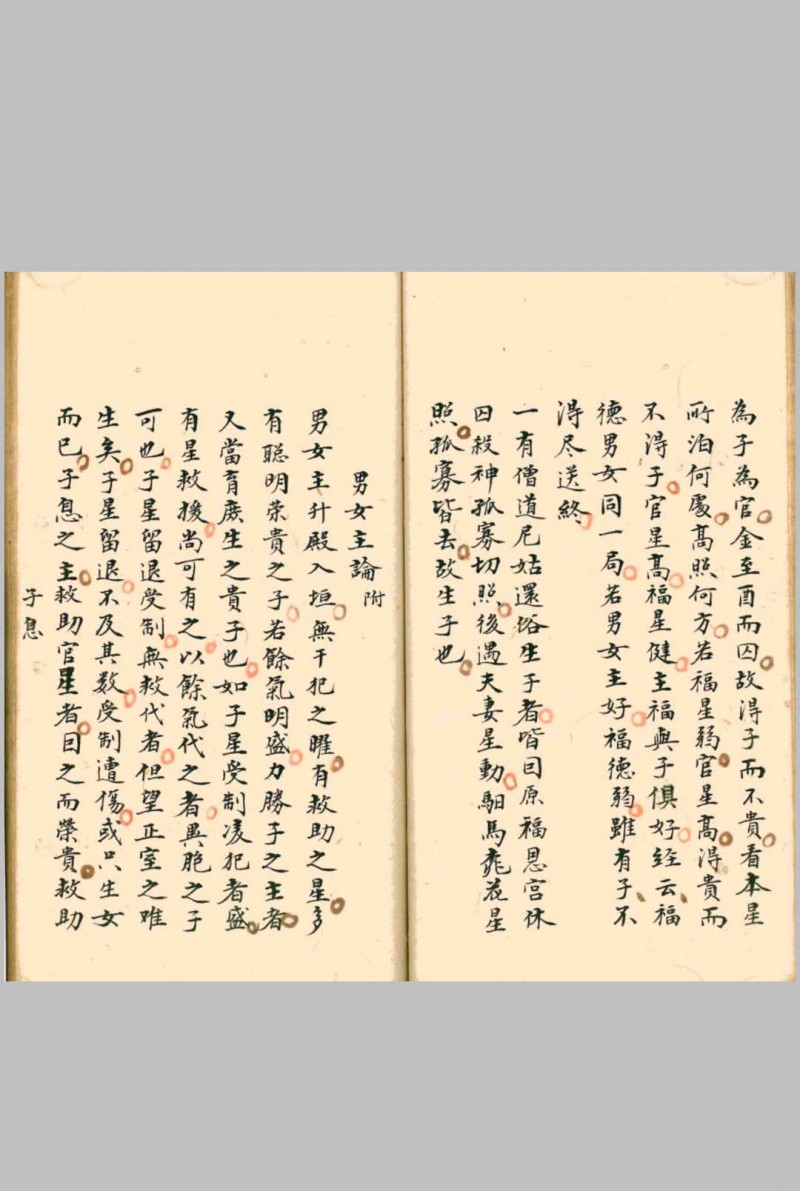 為子為官金至酉而囚故得子而不貴看本星
所泊何處高照何方若福星弱官星高得貴而
不得子官星高福星健主福與子俱好経云福
德男女同一局若男女主好福德弱雖有子不
得尽送終
一有僧道尼姑還俗生子者皆囙原福恩宮休
囚殺神孤寡切照後遇夫妻星動馹馬花星
照孤寡皆去故生子也
男女主論附
男女主升殿入垣無干犯之曜有救助之星多
有聡明荣貴之子若餘氣明盛力勝子之主者
又當育庻生之貴子也如子星受制凌犯者盛
有星救援尚可有之以餘氣代之者異胞之子
可也子星留退受制無救代者但望正室之难
生矣子星留退不及其数受制遭傷或只生女
而已子息之主救助官星者囙之而荣貴救助
子息